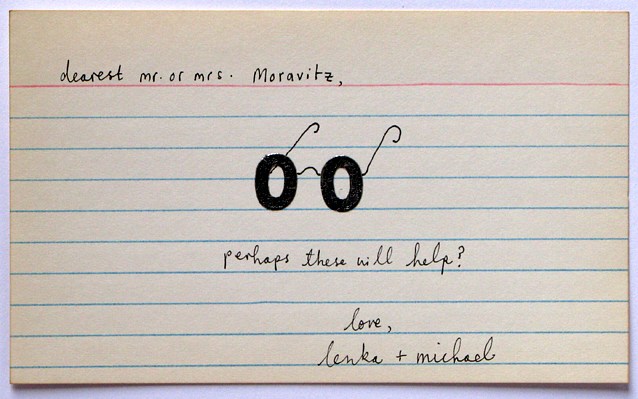 dearest mr. or mrs. Moravitz,
perhaps these will help?
love,
lenka + michael